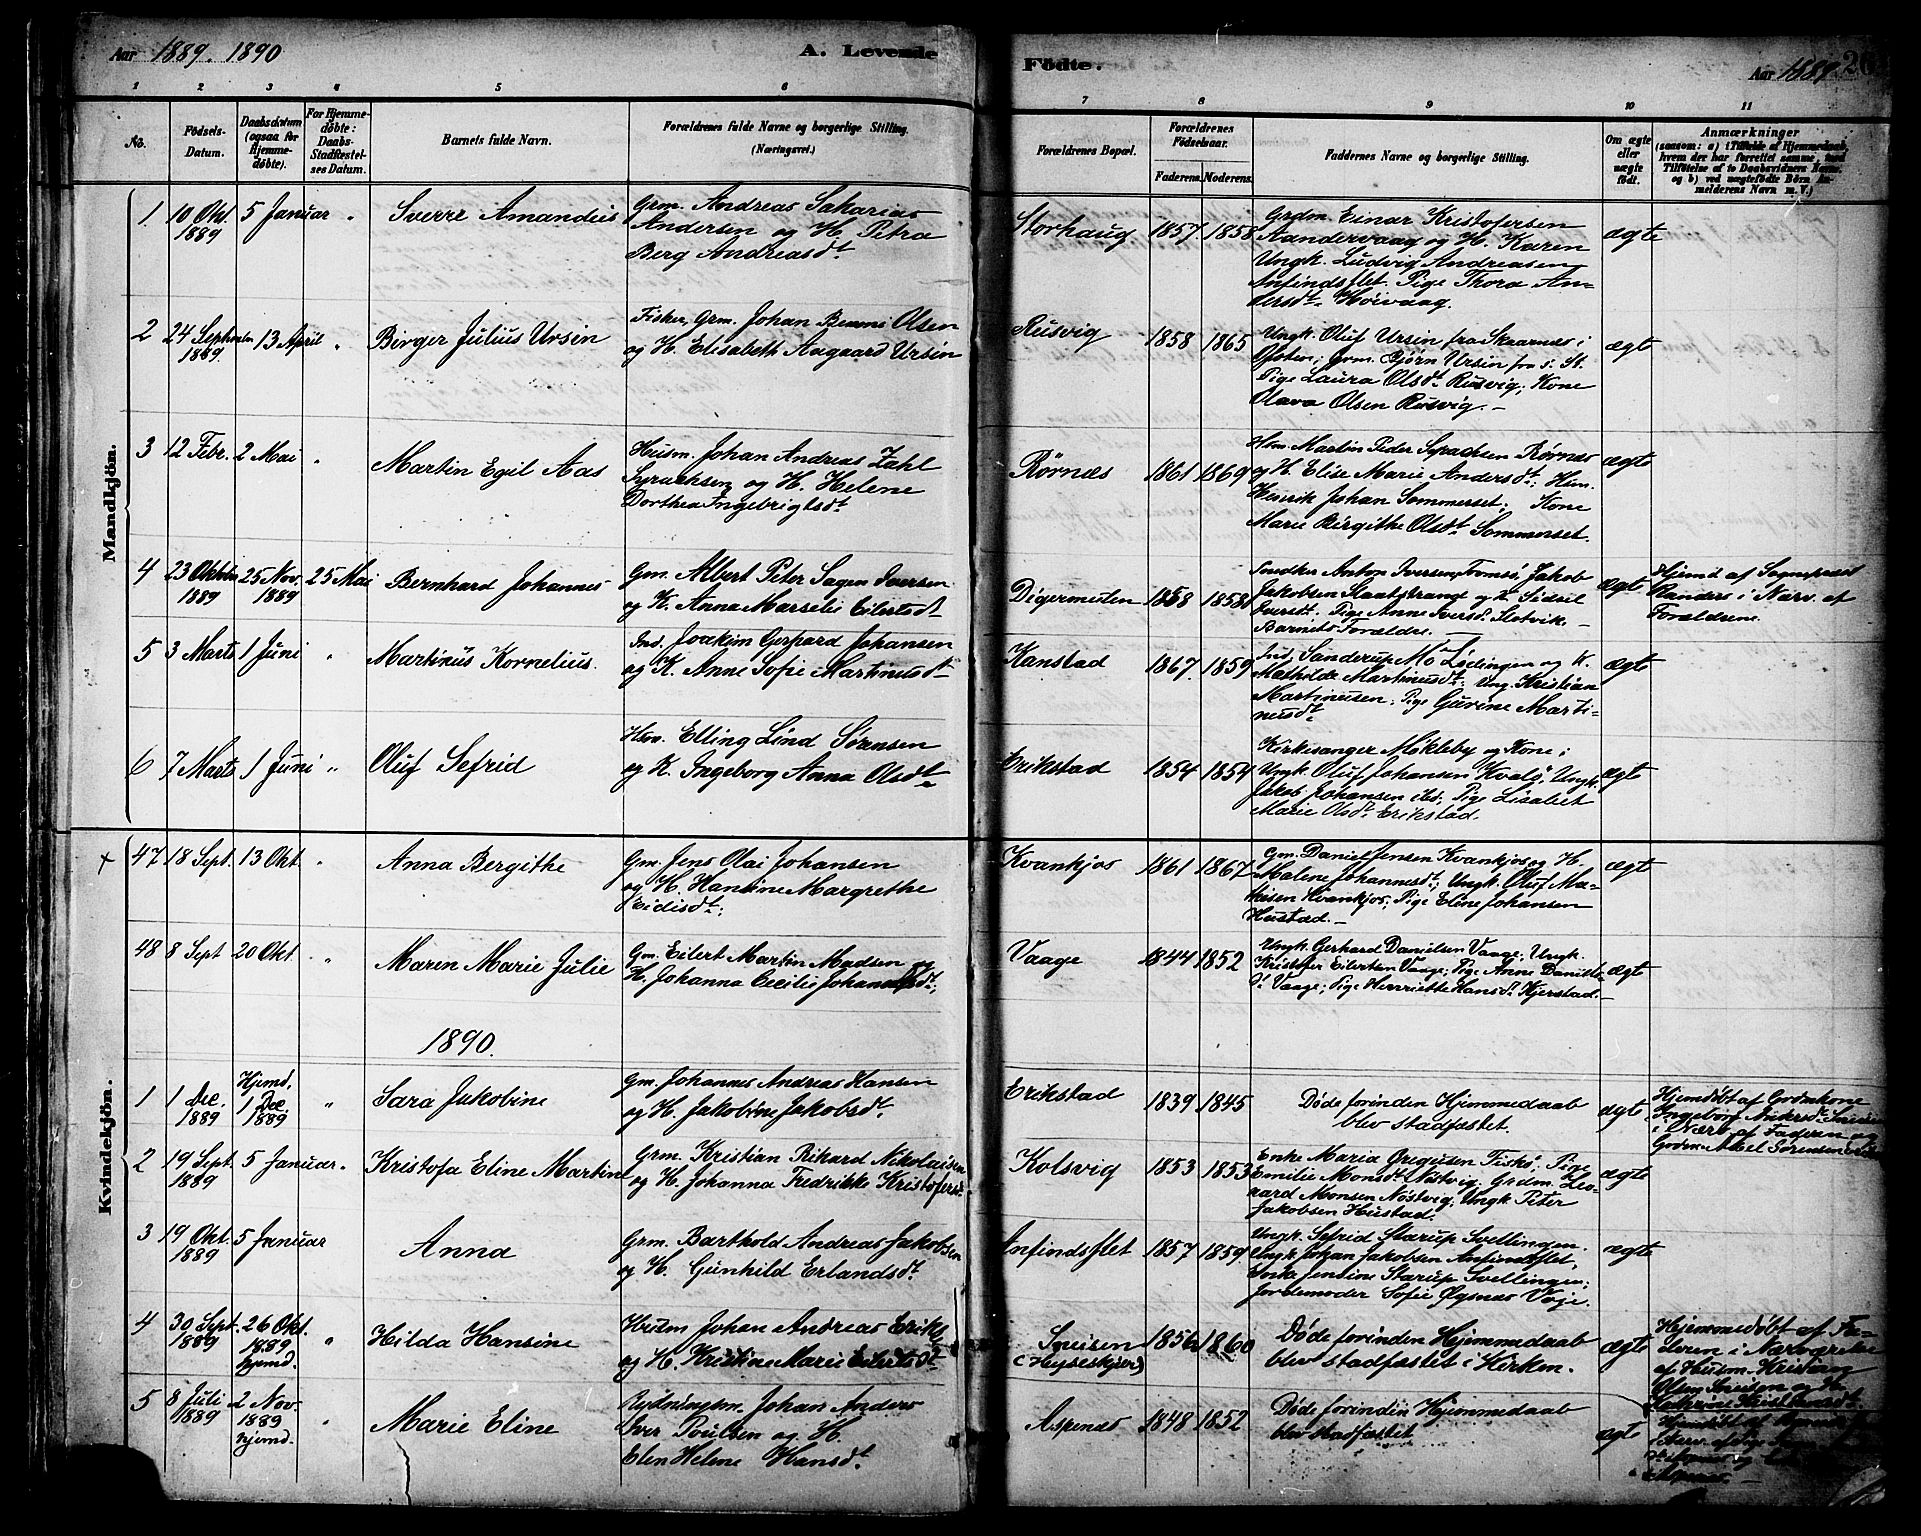 Aar 1889. 1890
A. Levende
Födte.
Aar 1889.
26
1 2 3 4 5 6 7 8 9 10 11
No.
Födsels-Datum.
Daabsdatum (ogsaa for Hjemmedøbte).
For Hjemmedøbte: Daabs-Stadfæstelses Datum.
Barnets fulde Navn.
Forældrenes fulde Navne og borgerlige Stilling. (Næringsvei.)
Forældrenes Bopæl.
Forældrenes Födselsaar.
Faderens. Moderens.
Faddernes Navne og borgerlige Stilling.
Om ægte eller uægte födt.
Anmærkninger (saasom: a) i Tilfælde af Hjemmedaab, hvem der har forrettet samme, med Tilföielse af to Daabsvidners Navne, og b) ved uægtefödte Börn Anmelderens Navn m. V.)
Mandkjön.
1. 10 Okt. 1889 5 Januar " Sverre Amandus
Grm. Andreas Sakarias
Andersen og H. Petra
Berg Andreasdt.
Storhaug 1857 1858
Grdm. Einar Kristofersen
Aandervaag og H. Karen
Ungk. Ludvig Andreasen
Anfindsflet. Pige Thora An-
dersdt. Høivaag.
ægte
2 24 September 1889. 13 April " Birger Julius Ursin
Fisker, Grm. Johan Benoni Olsen
og H. Elisabeth Aagaard Ursin
Rusvig 1858 1865
Ungk. Oluf Ursin fra Skaarnes i
Ofoten; Grm. Bjørn Ursin fra s. St.
Pige Laura Olsdt. Rusvig; Kone
Olava Olsen Rusvig. —
ægt
3 12 Febr. 2 Mai " Martin Egil Aas
Husm. Johan Andreas Zahl
Syrachsen og H. Helene
Dorthea Ingebrigtsdt
Rørnæs 1861 1869
Hm. Martin Peder Syrachsen Rørnæs
og H. Elise Marie Andersdt; Hm.
Henrik Johan Sommerset; Kone
Marie Birgithe Olsdt. Sommerset.
ægte
4 23 Oktober 1889 25 Nov. 1889 25 Mai Bernhard Johannes
Gm. Albert Peter Sagen Iversen
og K. Anna Marselie Eilertsdt
Digermulen 1858 1858
Snedker Anton Iversen Tromsø, Jakob
Jakobsen Slaatstrang og K. Sidsil
Iversdt. Pige Anne Iversdt. Slotvik. —
Barnets Forældre.
ægte
Hjemd af Sogneprest
Randers i Nærv. af
Forældrene.
5 3 Marts 1 Juni " Martinus Kornelius.
Ind. Joakim Gerhard Johansen
og K. Anne Sofie Martinusdt
Kanstad 1867 1859
Ind. Sanderup Mo Lødingen og K.
Mathilde Martinusdt. Ung. Kristian
Martinusen; Pige Gurine Marti-
nusdt
ægte
6 7 Marts 1 Juni " Oluf Sefrid
Hm. Elling Lind Sørensen
og K. Ingeborg Anna Olsdt.
Erikstad 1854 1854
Kirkesanger Møkleby og Kone;
Ungk. Oluf Johansen Kvalø, Ungk.
Jakob Johansen ibd; Pige Lisabet
Marie Olsdt. Erikstad.
ægte
Kvindekjön.
x 47 18 Sept. 13 Okt. " Anna Bergithe
Gm. Jens Olai Johansen
og H. Hansine Margrethe
Eidisdt.;
Kvankjos 1861 1867
Gm. Daniel Jensen Kvankjos og H.
Malene Johannesdt.; Ungk. Oluf Ma-
thisen Kvankjos; Pige Eline Johansen
Hustad. —
ægt
48 8 Sept 20 Okt. " Maren Marie Julie
Gm. Eilert Martin Madsen og
H. Johanna Cecilie Johannesdt.;
Vaage 1844 1852
Ungk. Gerhard Danielsen Vaage; Ungk.
Kristofer Eilertsen Vaage; Pige Anne Daniels-
dt. Vaage; Pige Henriette Hansdt. Kjerstad. —
ægte
1890.
1 1 Dec. 1889 Hjemd. 1 Dec. 1889 " Sara Jakobine
Gm. Johannes Andreas Hansen
og H. Jakobine Jakobsdt.
Erikstad 1839 1845
Døde forinden Hjemmedaab
blev stadfæstet.
ægte
Hjemdøbt af Grdmkone
Ingeborg Andersdt.
i Nærv. af Faderen og
Grdm. Axel Sørensen
2 19 Sept. 1889 5 Januar. " Kristofa Eline Martine
Grm. Kristian Rikard Nikolaisen
og H. Johanna Fredrikke Kristofersdt.
Kolsvig 1853 1853
Enke Maria Gregusen Fiskø; Pige
Emilie Monsdt. Nøstvig; Grdm. Leo-
nard Monsen Nøstvig; Ungk. Peter
Jakobsen Hustad.
ægte
3 19 Okt. 1889 5 Januar Anna
Grm. Barthold Andreas Jakobsen
og H. Gunhild Erlandsdt.
Anfindsflet 1857 1859.
Ungk. Sefrid Starup Svellingen.
Ungk. Johan Jakobsen Anfindsflet,
Enke Jensine Starup Svellingen;
Jordemoder Sofie Øgsnæs Voje.
ægte
4 30 Sept. 1889 26 Okt. 1889 hjemd. " Hilda Hansine
Husm Johan Andreas Eriks.
og H. Kristine Marie Eilertsdt.
Sneisen (Heggeskjær) 1856 1860
Døde forinden Hjemmedaab
blev stadfæstet i Kirken.
ægte
Hjemmedøbt af Fa-
deren i Nærværelse
af Husm. Kristian
Olsen Sneisen og H.
Kathrine Kristiansdt.
5 8 Juli 1889 2 Nov. 1889 hjemd. " Marie Eline
Rydningsm. Johan Anders
Iver Poulsen og H.
Elen Helene Hansdt.
Aspenes 1848 1852
Døde forinden Hjemmedaab
blev stadfæstet
ægte
Hjemdøbt af
i Nærv. af Pige
og
Aspenes —